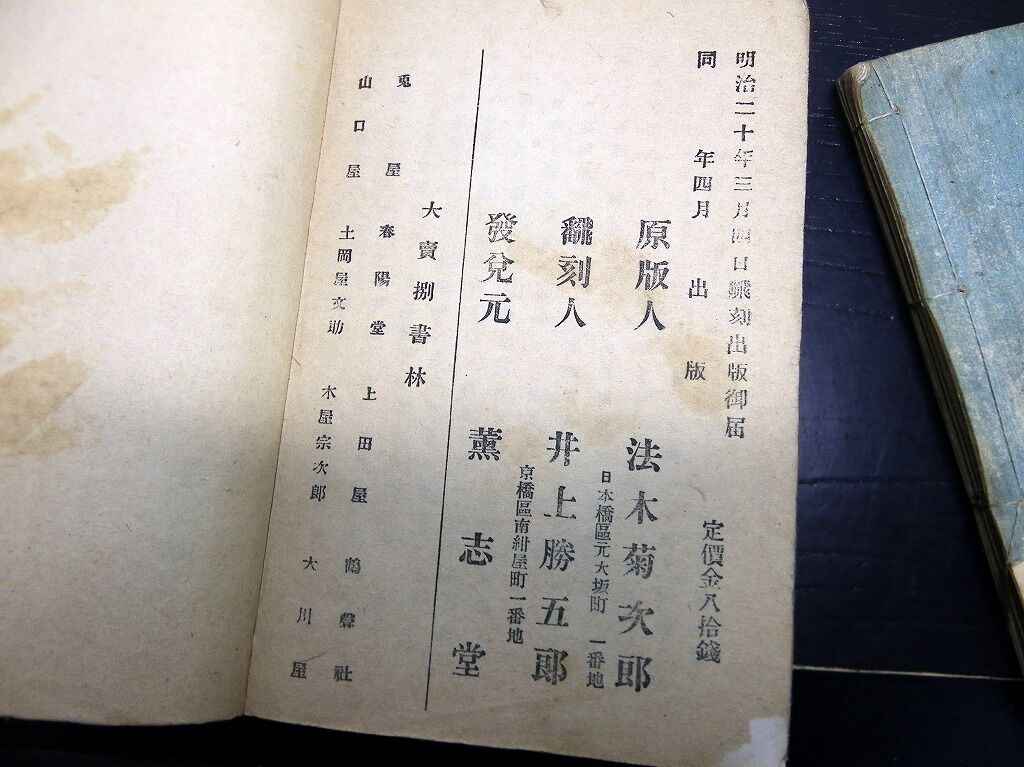 明治二十年三月四日飜刻出版御届
同年四月出版
定價金八拾錢
原版人 法木菊次郎
日本橋區元大坂町一番地
飜刻人 井上勝五郎
京橋區南紺屋町一番地
發兌元 薰志堂
大賣捌書林
兎屋 春陽堂 上田屋 鶴聲社
山口屋 土岡屋文助 木屋宗次郎 大川屋